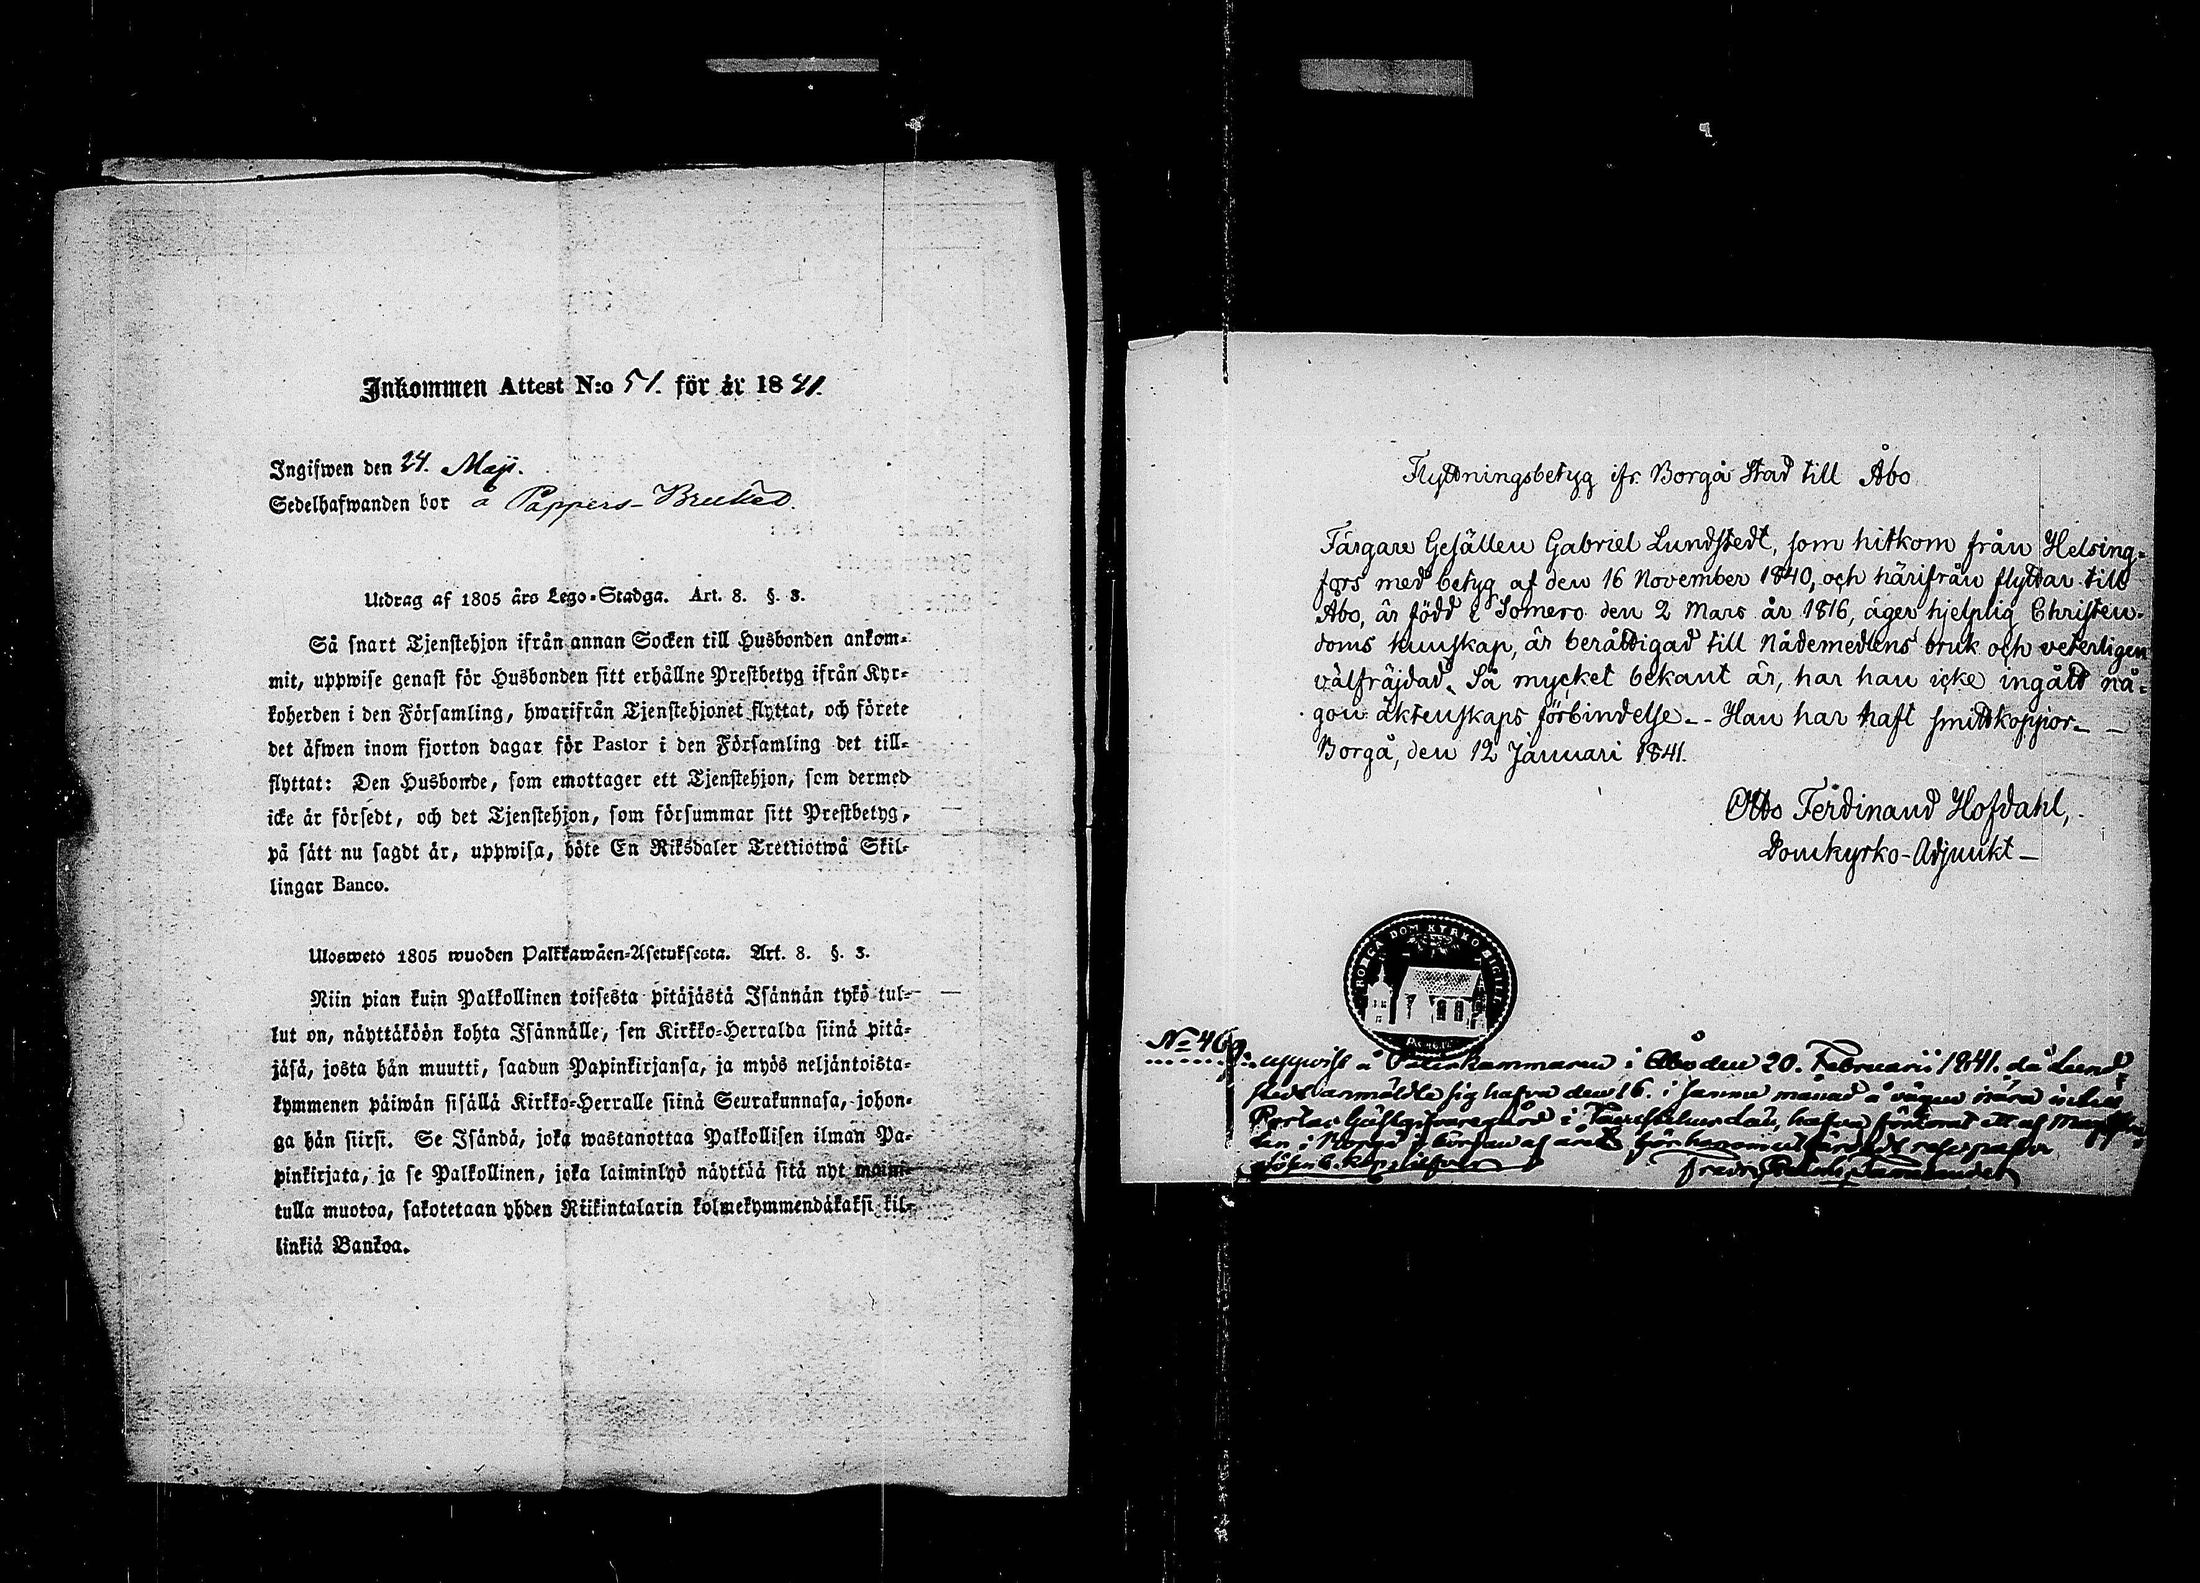 Inkommen Attest N:o 51. för år 1841.
Ingifwen den 24. Maji.
Sedelhafwanden bor å Pappers-Bruket.
Utdrag af 1805 års Lego-Stadga. Art. 8. §. 3.
Så snart Tjenstehjon ifrån annan Socken till Husbonden ankom-
mit, uppwise genast för Husbonden sitt erhållne Prestbetyg ifrån Kyr-
koherden i den Församling, hwarifrån Tjenstehjonet flyttat, och förete
det äfwen inom fjorton dagar för Pastor i den Församling det till-
flyttat: Den Husbonde, som emottager ett Tjenstehjon, som dermed
icke är försedt, och det Tjenstehjon, som försummar sitt Prestbetyg,
på sätt nu sagdt är, uppwisa, böte En Riksdaler Trettiotwå Skil-
lingar Banco.
Ulosweto 1805 wuoden Palkkawäen-Asetuksesta. Art. 8. §. 3.
Niin pian kuin Palkollinen toisesta pitäjästä Isännän tykö tul-
lut on, näyttäköön kohta Isännälle, sen Kirkko-Herralda siinä pitä-
jäsä, josta hän muutti, saadun Papinkirjansa, ja myös neljäntoista-
kymmenen päiwän sisällä Kirkko-Herralle siinä Seurakunnasa, johon-
ga hän siirsi. Se Isändä, joka wastanottaa Palkollisen ilman Pa-
pinkirjata, ja se Palkollinen, joka laiminlyö näyttää sitä nyt maini-
tulla muotoa, sakotetaan yhden Riikintalarin kolmekymmendäkaksi kil-
linkiä Bankoa.
Flyttningsbetyg ifr. Borgå Stad till Åbo
Färgare Gesällen Gabriel Lundstedt, som hitkom från Helsing-
fors med betyg af den 16 November 1840, och härifrån flyttar till
Åbo, är född i Somero den 2 Mars år 1816, äger hjelplig Christen-
doms kunskap, är berättigad till Nådemedlens bruk och veterligen
välfräjdad. Så mycket bekant är, har han icke ingått nå-
gon äktenskaps förbindelse. - Han har haft smittkoppor. -
Borgå, den 12 Januari 1841.
Otto Ferdinand Hofdahl,
Domkyrko-Adjunkt -
BORGÅ DOM KYRKO SIGILL
N=46
uppvist å kammaren i Åbo den 20. Februarii 1841. då Lund-
stedt anmälde sig hafva den 16. i samma månad å vägen nära
Gästgifvaregård i hafva förlorat ett af
i Borgå i början af året för honom